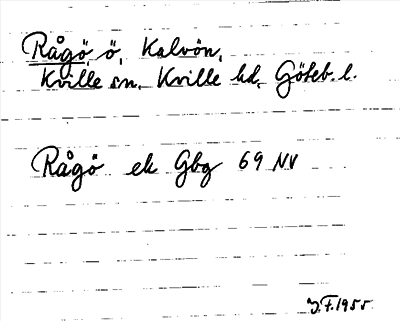 Rågö ö, Kalvön,
Kville sn. Kville hd, Göteb. l.
Rågö ek Gbg 69 NV
J.F. 1955